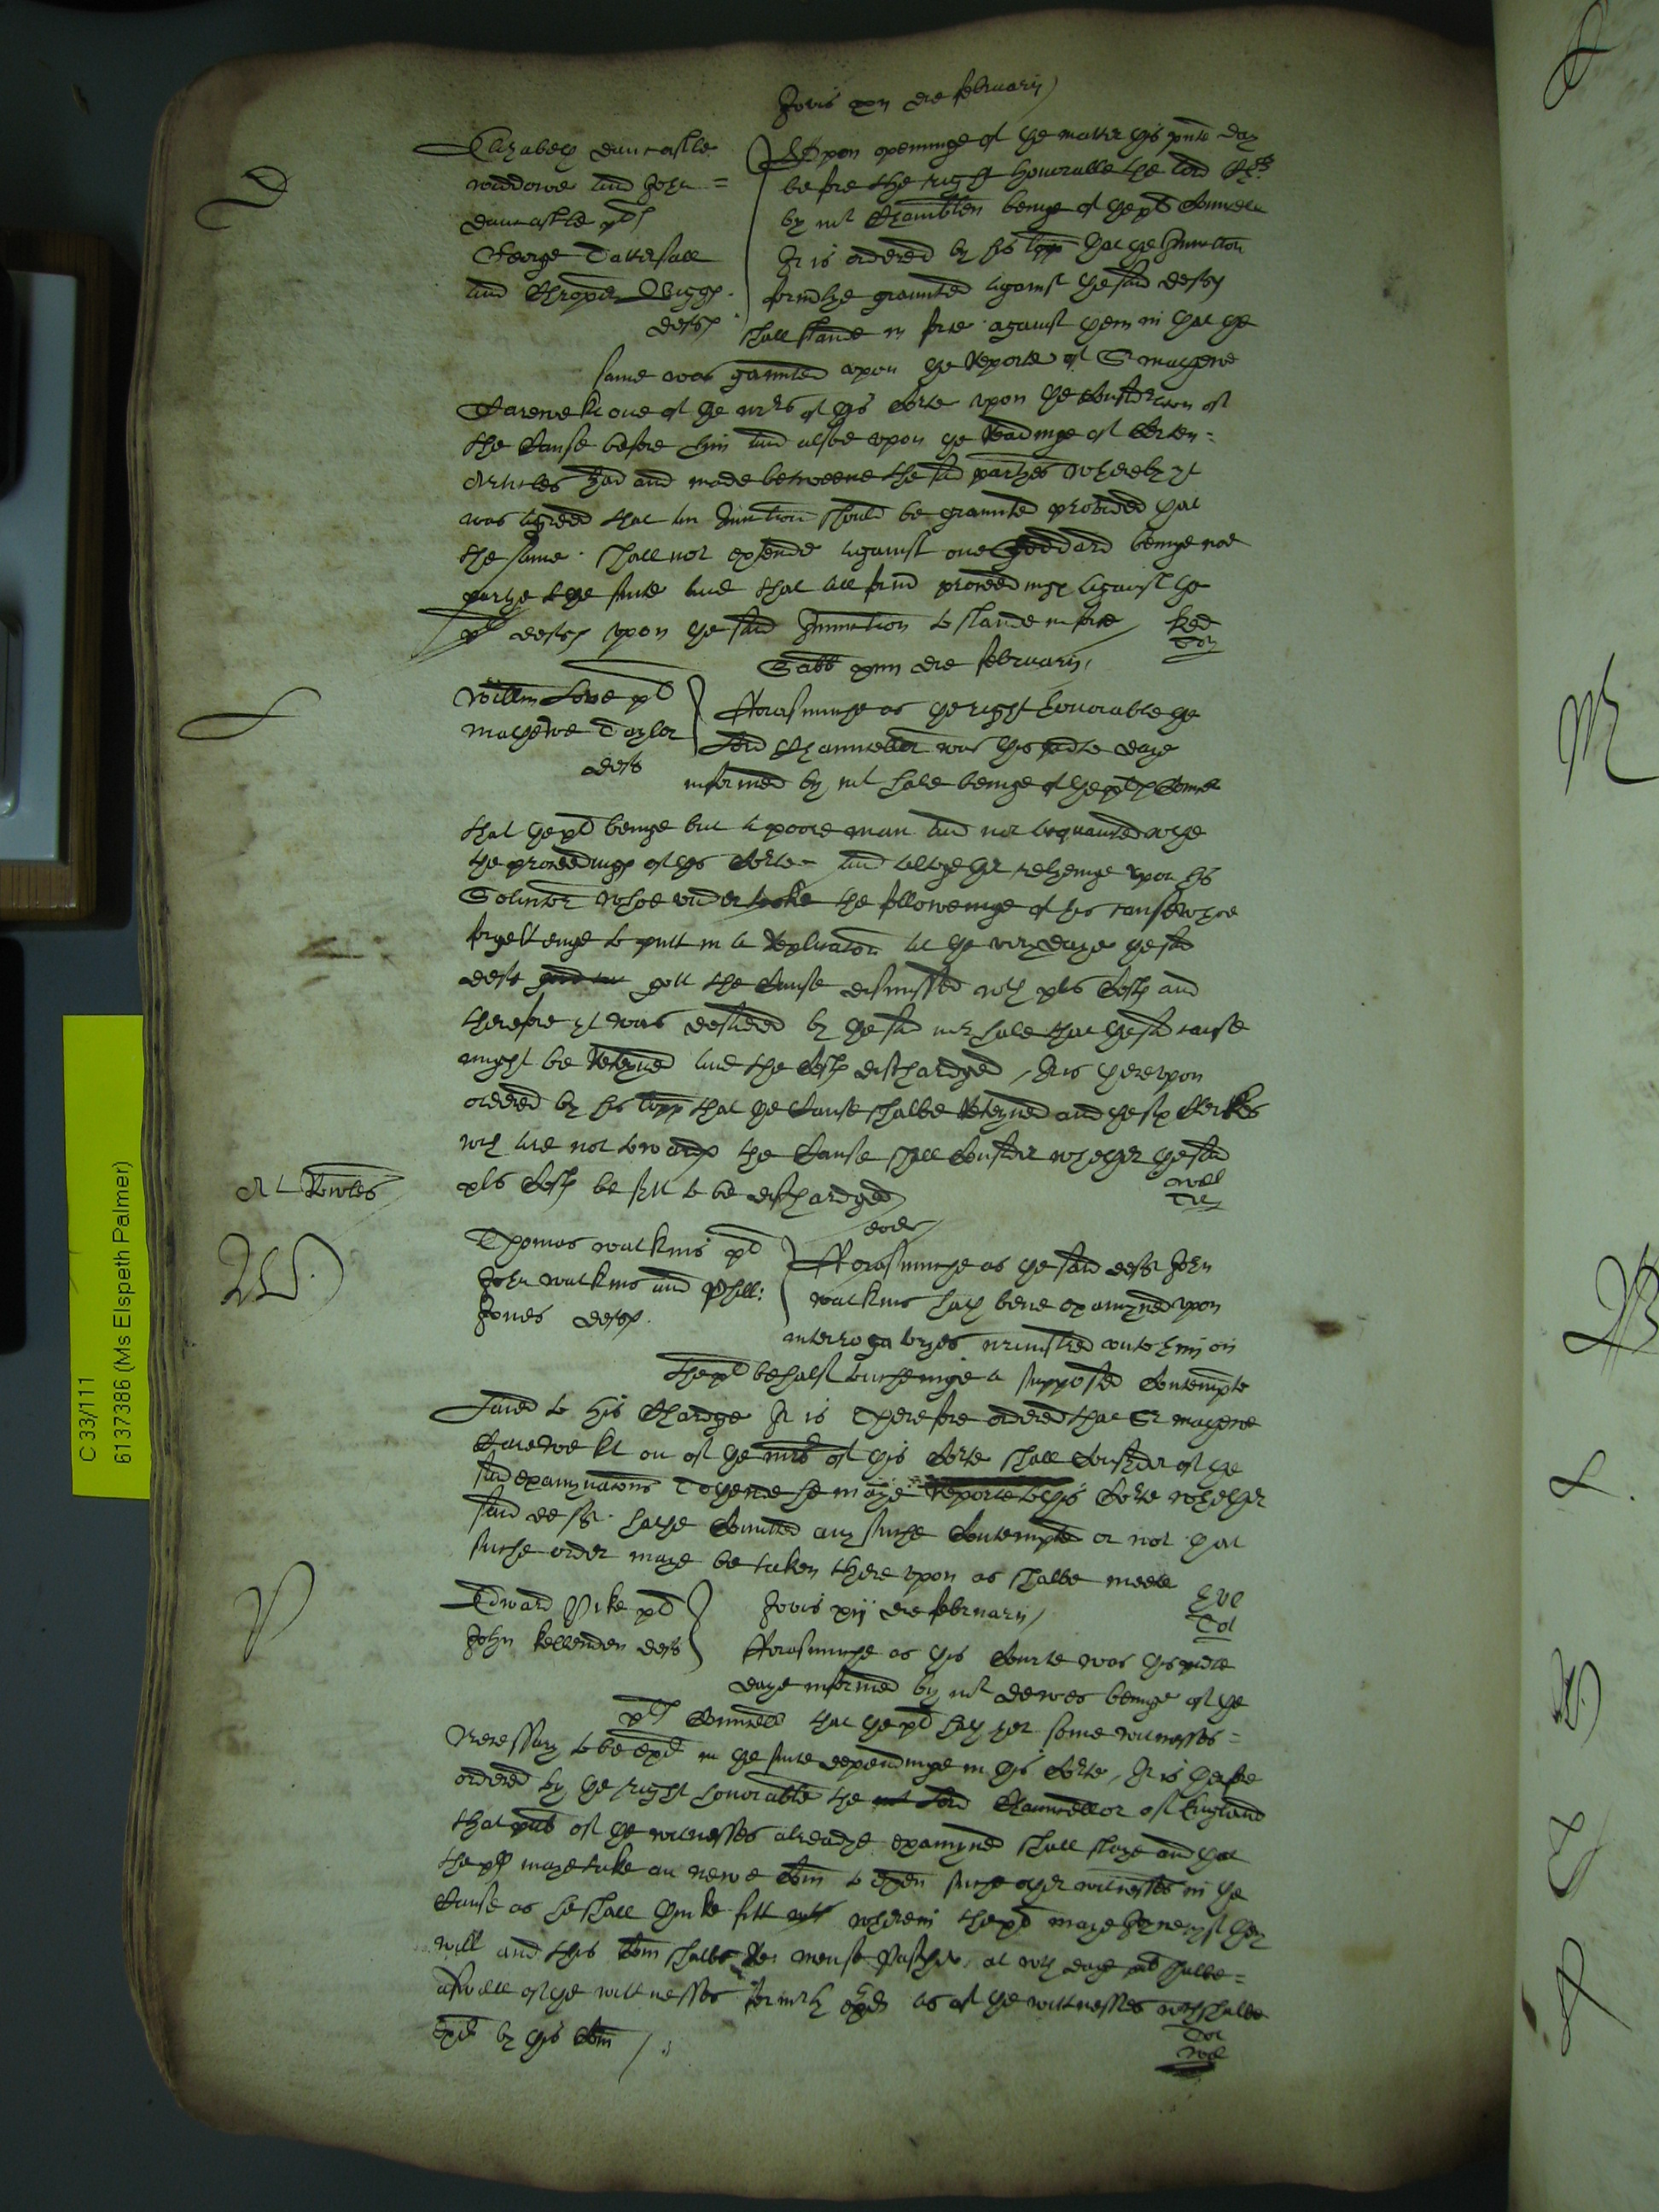 Jovis xii die februarij
D
Elizabeth Duncastle
widdowe and John =
Duncastle plts
George Tattersall
and Briggs
defts
Uppon openinge of the matter this pnte day
before the right honourable the lord
by mr beinge of the plts Councell
It is ordered by his lopp that the Iniunction
formerlye graunted against the said defts
shall stande in force against them in that the
same was graunted upon the Reporte of Sr mathewe
Carewe kt one of the mrs of this Corte upon the Consideracon of
the Cause before him and alsoe upon the Readinge of Certen =
Articles had and made betweene the sd partyes wherebye yt
was agreed that an Iniunction should be graunted provided that
the same shall not extende against one Goddard beinge noe
partye to the suite and that all former proceedings against the
defts upon the said Iniunction to stande in force
Sabb xiiii die februarij
L
Willm Love plt
mathewe Taylor
deft
Fforasmuche as the right honorable the
Lord Chauncellor was this pnte daye
informed by mr Hale beinge of the plts Councell
that the plt beinge but a poore man and not acquainted wth
the proceedings of this Corte and altogether relyinge upon his
Solicitor whoe undertooke the followeinge of his cause whoe
forgettinge to putt in a Replicacon at the very daye the sd
deft gott the Cause dismissed wth xls Costs and
therefore yt was desired by the sd mr Hale that the sd cause
might be Reteyned and the Costs discharged, It is thereupon
ordered by his lopp that the Cause shalbe Reteyned and the six Clerkes
wch are not towards the Cause shall Consider whether the sd
xls Costs be fitt to be discharged
eod
W
Thomas watkins plt
John watkins and Phill:
Jones defts
Fforasmuche as the said deft John
watkins hath bene examyned upon
interrogatoryes ministred unto him on
the plts behalf touchinge a supposed Contempte
laied to his Chardge It is therefore ordered that Sr mathewe
Carewe kt on of the mrs of this Corte shall Consider of the
said examynacons Togither he maye Reporte to this Corte whether
said deft hathe Comitted any suche Contempte or not that
suche order maye be taken thereupon as shalbe meete
P
Edward Pike plt
John kellenden deft
Jovis xii die februarij
Fforasmuche as this Courte was this pnte
daye informed by mr dewes beinge of the
plts Councell that the plt hath yet some witnesses =
Necessary to be exd in the suite dependinge in this Corte, It is therfore
ordered by the right honorable the Lord Chauncellor of England
that publ of the witnesses alreadye examyned shall staye and that
the plt maye take an newe Com to exen suche other witnesses in the
Cause as he shall thinke fitt wherein the plt maye Joyne yf they
will and this Com shalbe Ret mense Pasche, at wch daye publ shalbe =
aswell of the wittnesses formerly exed as of the wittnesses wch shalbe
exd by this Com
C 33/111
6137386 (Ms Elspeth Palmer)